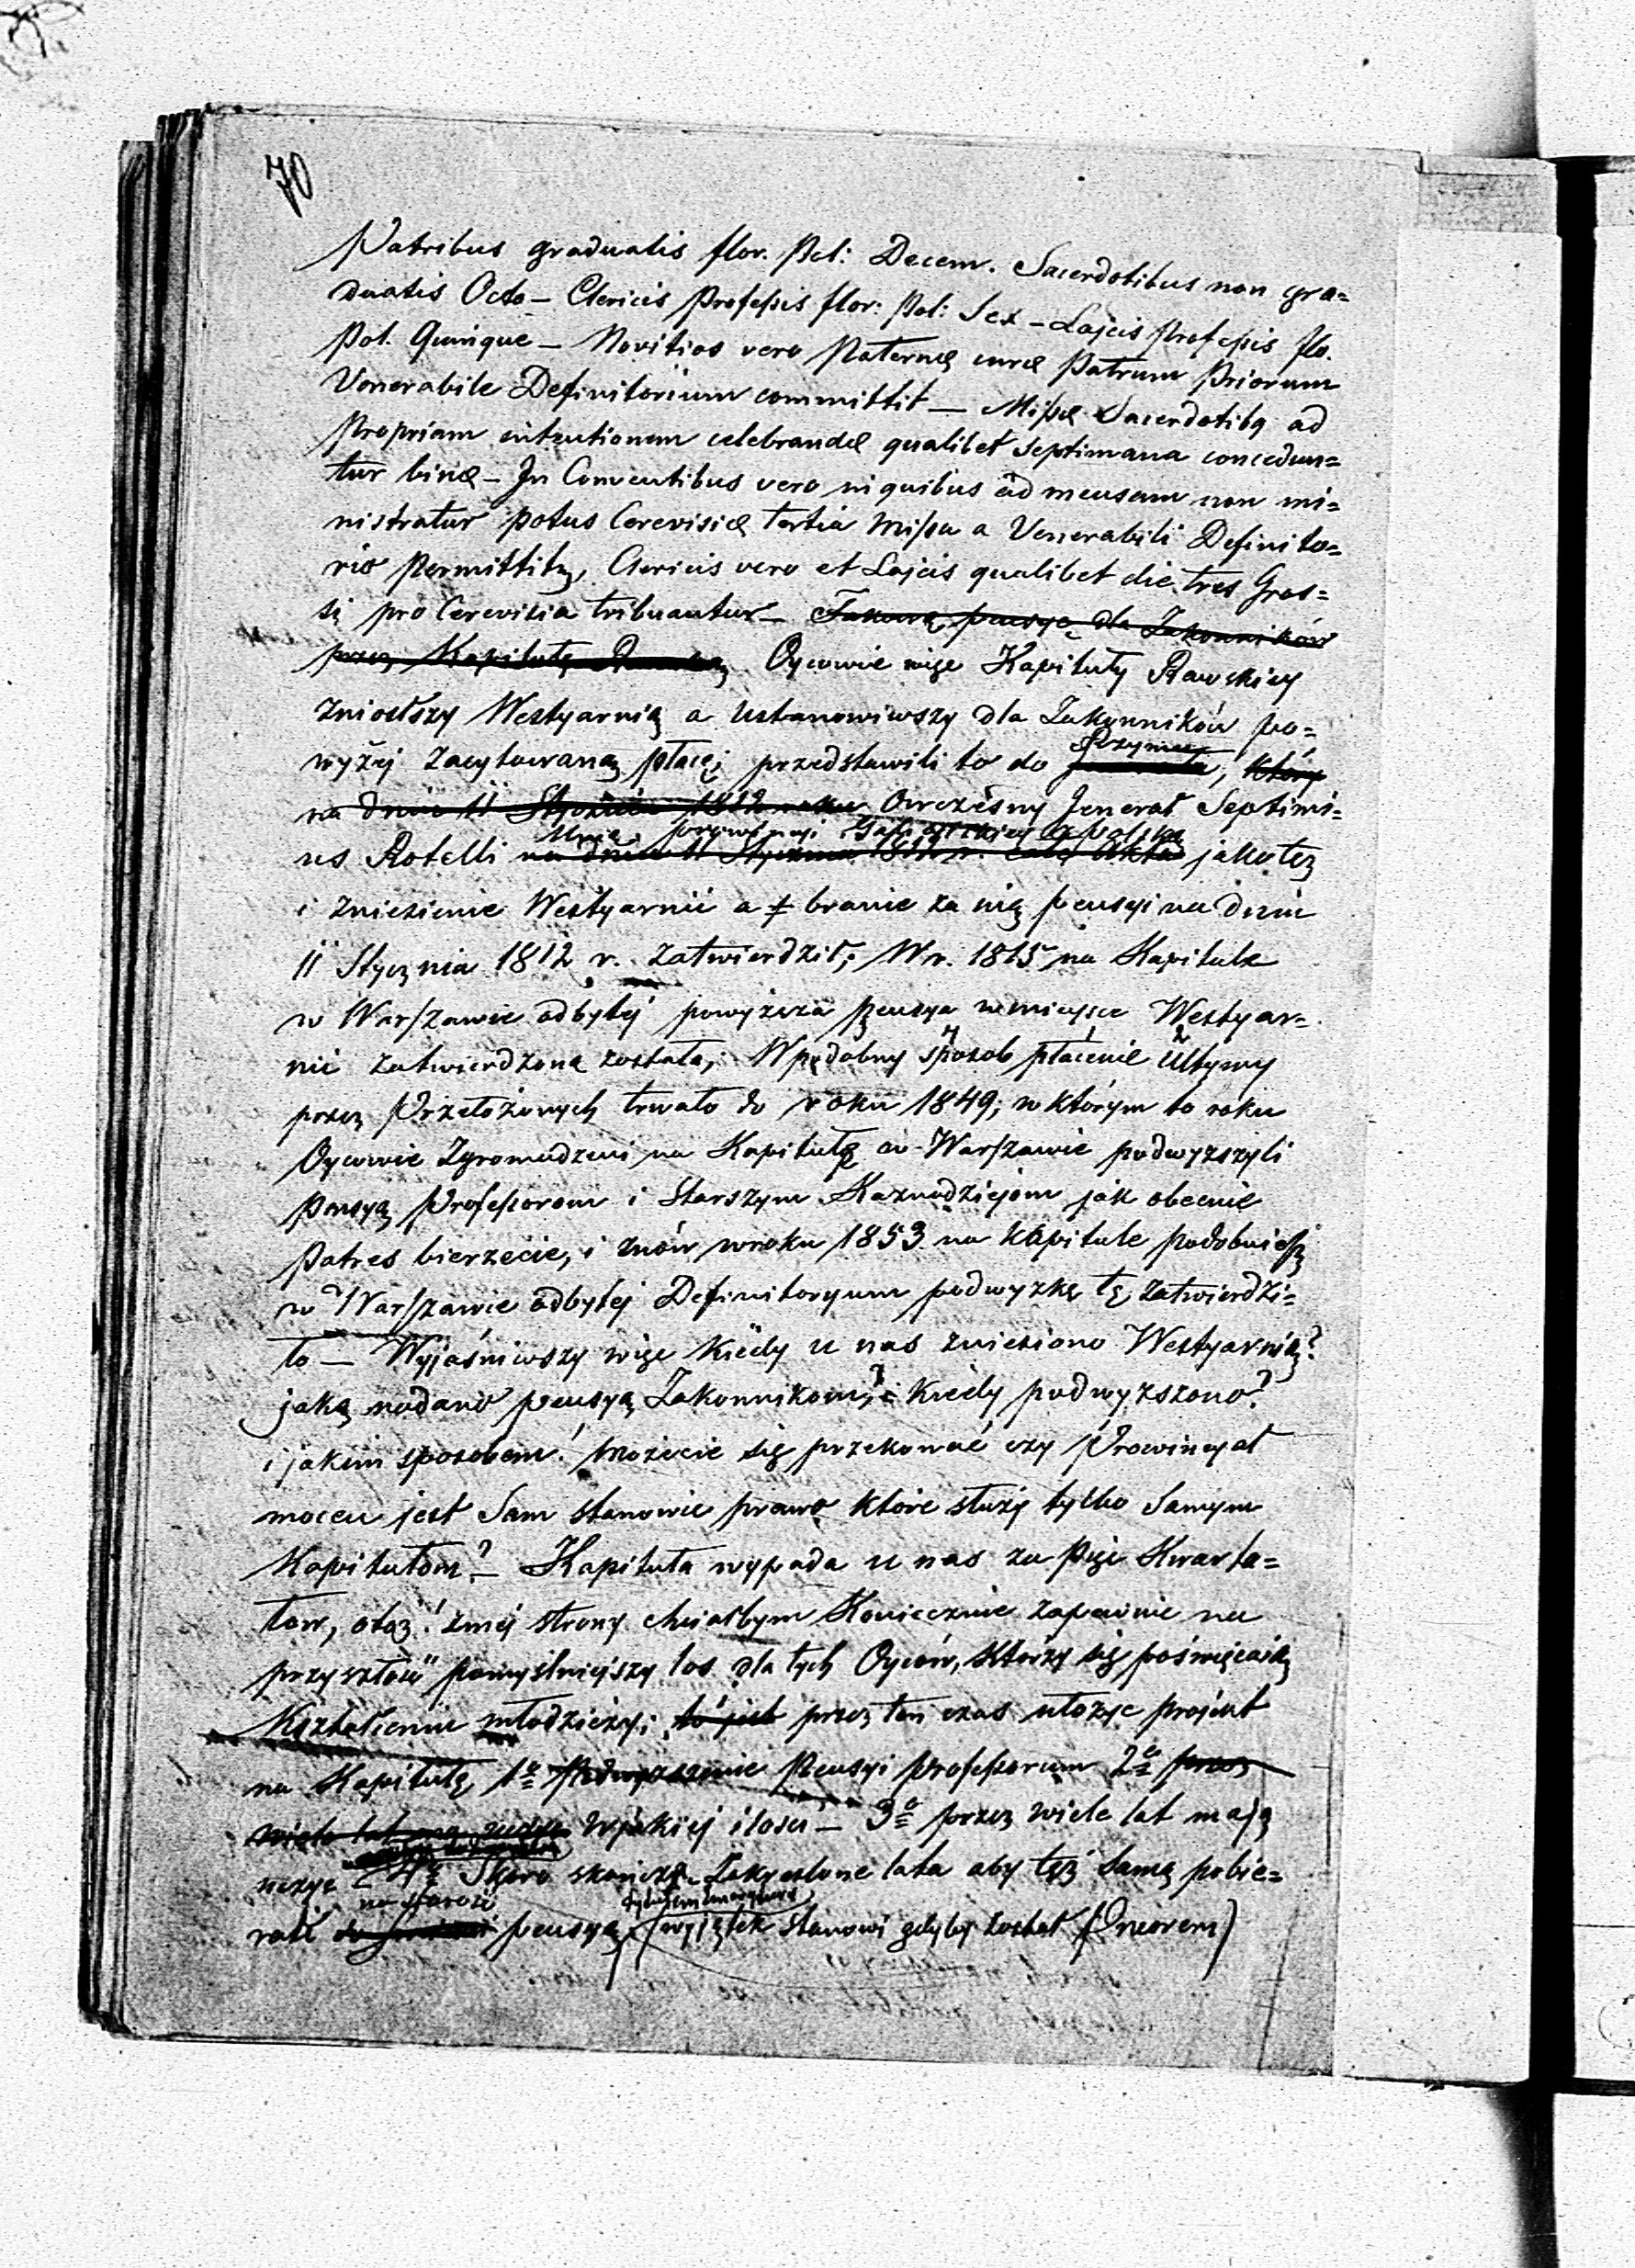 70
Patribus graduatis flor. Pol: Decem. Sacerdotibus non gra=
duatis Octo — Clericis Professis flor: Pol: Sex — Lajcis Professis flo.
Pol. Quinque — Novitios vero Paternæ curæ Patrum Priorum
Venerabile Definitorium committit — Missæ Sacerdotibq ad
Propriam intentionem celebrandæ qualibet septimana concedun=
tur binæ — In Conventibus vero in quibus ad mensam non mi=
nistratur potus Cerevisiæ tertia Missa a Venerabili Definito=
rio Permittitq, Clericis vero et Lajcis qualibet die tres Gros=
si pro Cerevisia tribuantur — Takową pensyę dla Zakonników
przez Kapitułę Oycowie więc Kapituły Rawskiey
zniosłszy Westyarnią a ustanowiwszy dla Zakonników po=
wyżéj zacytowaną płacę; przedstawili to do Rzymu, który
na dniu 11 Stycznia 1812 roku Owczesny Jenerał Septimi=
us Rotelli na dniu 11 Stycznia 1812 r. całe Akta jakoteż
Unią prowincyi Galicyjskiey z Polską
i zniesienie Westyarnii a branie za nią pensyi na dniu
11 Stycznia 1812 r. zatwierdził; W r. 1815 na Kapitule
w Warszawie odbytéj powyższa pensya w miejsce Westyar=
nii zatwierdzoną została; W podobny sposob płacenie
przez Przełożonych trwało do roku 1849; w którym to roku
Oycowie Zgromadzeni na Kapitułę w Warszawie podwyzszyli
Pensyą Professorom i Starszym Kaznodziejom jak obecnie
Patres bierzecie, i znów w roku 1853 na Kapitule podobnież
w Warszawie odbytéj Definitoryum podwyzkę tę zatwierdzi=
ło — Wyjaśniwszy więc kiedy u nas zniesiono Westyarnią?
jaką nadano pensyą Zakonnikom? i kiedy podwyzszono?
i jakim sposobem! Możecie się przekonać czy Prowincyał
mocen jest Sam stanowic prawo które służy tylko Samym
Kapitułom? — Kapituła wypada u nas za Pięć Kwarta=
łow, otoż! z méj strony chciałbym Koniecznie zapewnic na
przyszłość pomyślniejszy los dla tych Oyców, którzy się poświęcają
Kształceniu młodzieży; przez ten czas ułożyc projekt
na Kapitułę, 1e Podwyzszenie Pensyi Professorum 2e przez
wiele lat W jakiéj ilosci — 3e przez wiele lat mają
uczyc 4e Skoro skończą Zakreslone lata aby tęż Samą pobie=
na starość
rali pensyą, (wyjątek stanowi gdyby został Priorem)